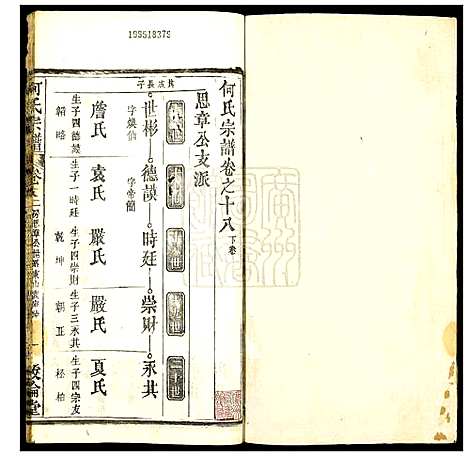 198518379
何氏宗譜卷之十八 下卷
思章公支派
其成長子
世彬 德談 時廷 崇財 永其
字煥伯 字帝簡
詹氏 袁氏 嚴氏 嚴氏 夏氏
生子四德談
生子一時廷
生子四崇財
生子三永其
生子四宗友
韜略
乾坤
朝正
松柏
何氏宗譜
敦倫堂